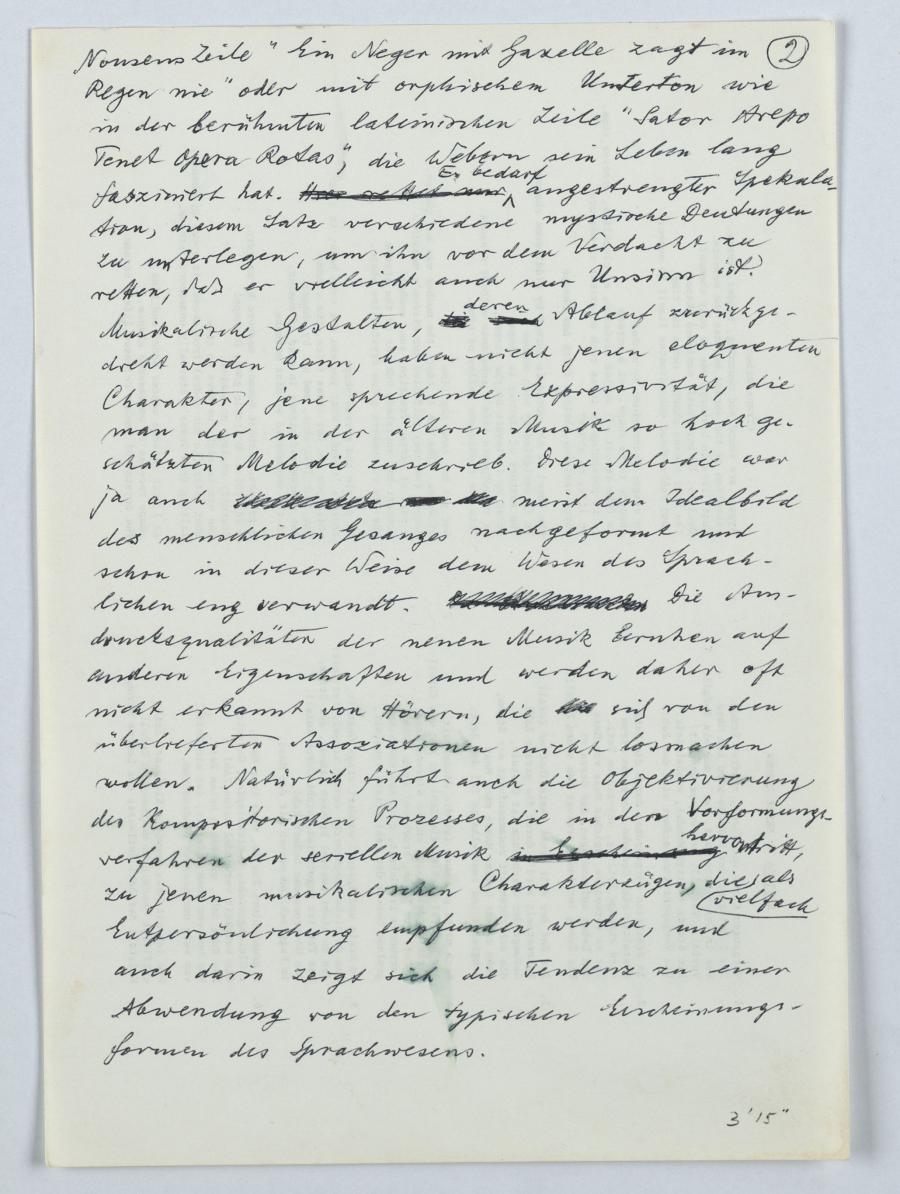 Nonsens Zeile "Ein Neger mit Gazelle zagt im ②
Regen nie" oder mit orphischem Unterton wie
in der berühmten lateinischen Zeile "Sator Arepo
Tenet Opera Rotas", die Webern sein Leben lang
Es bedarf
fasziniert hat. angestrengter Spekula-
tion, diesem Satz verschiedene mystische Deutungen
zu unterlegen, um ihn vor dem Verdacht zu
retten, daß er vielleicht auch nur Unsinn ist.
deren
Musikalische Gestalten, Ablauf zurückge-
dreht werden kann, haben nicht jenen eloquenten
Charakter, jene sprechende Expressivität, die
man der in der älteren Musik so hoch ge-
schätzten Melodie zuschrieb. Diese Melodie war
ja auch meist dem Idealbild
des menschlichen Gesanges nachgeformt und
schon in dieser Weise dem Wesen des Sprach-
lichen eng verwandt. Die Aus-
drucksqualitäten der neuen Musik beruhen auf
anderen Eigenschaften und werden daher oft
nicht erkannt von Hörern, die sich von den
überlieferten Assoziationen nicht losmachen
wollen. Natürlich führt auch die Objektivierung
des kompositorischen Prozesses, die in den Vorformungs-
hervor
verfahren der seriellen Musik tritt,
zu jenen musikalischen Charakterzügen, die als
vielfach
Entpersönlichung empfunden werden, und
auch darin zeigt sich die Tendenz zu einer
Abwendung von den typischen Erscheinungs-
formen des Sprachwesens.
3'15"